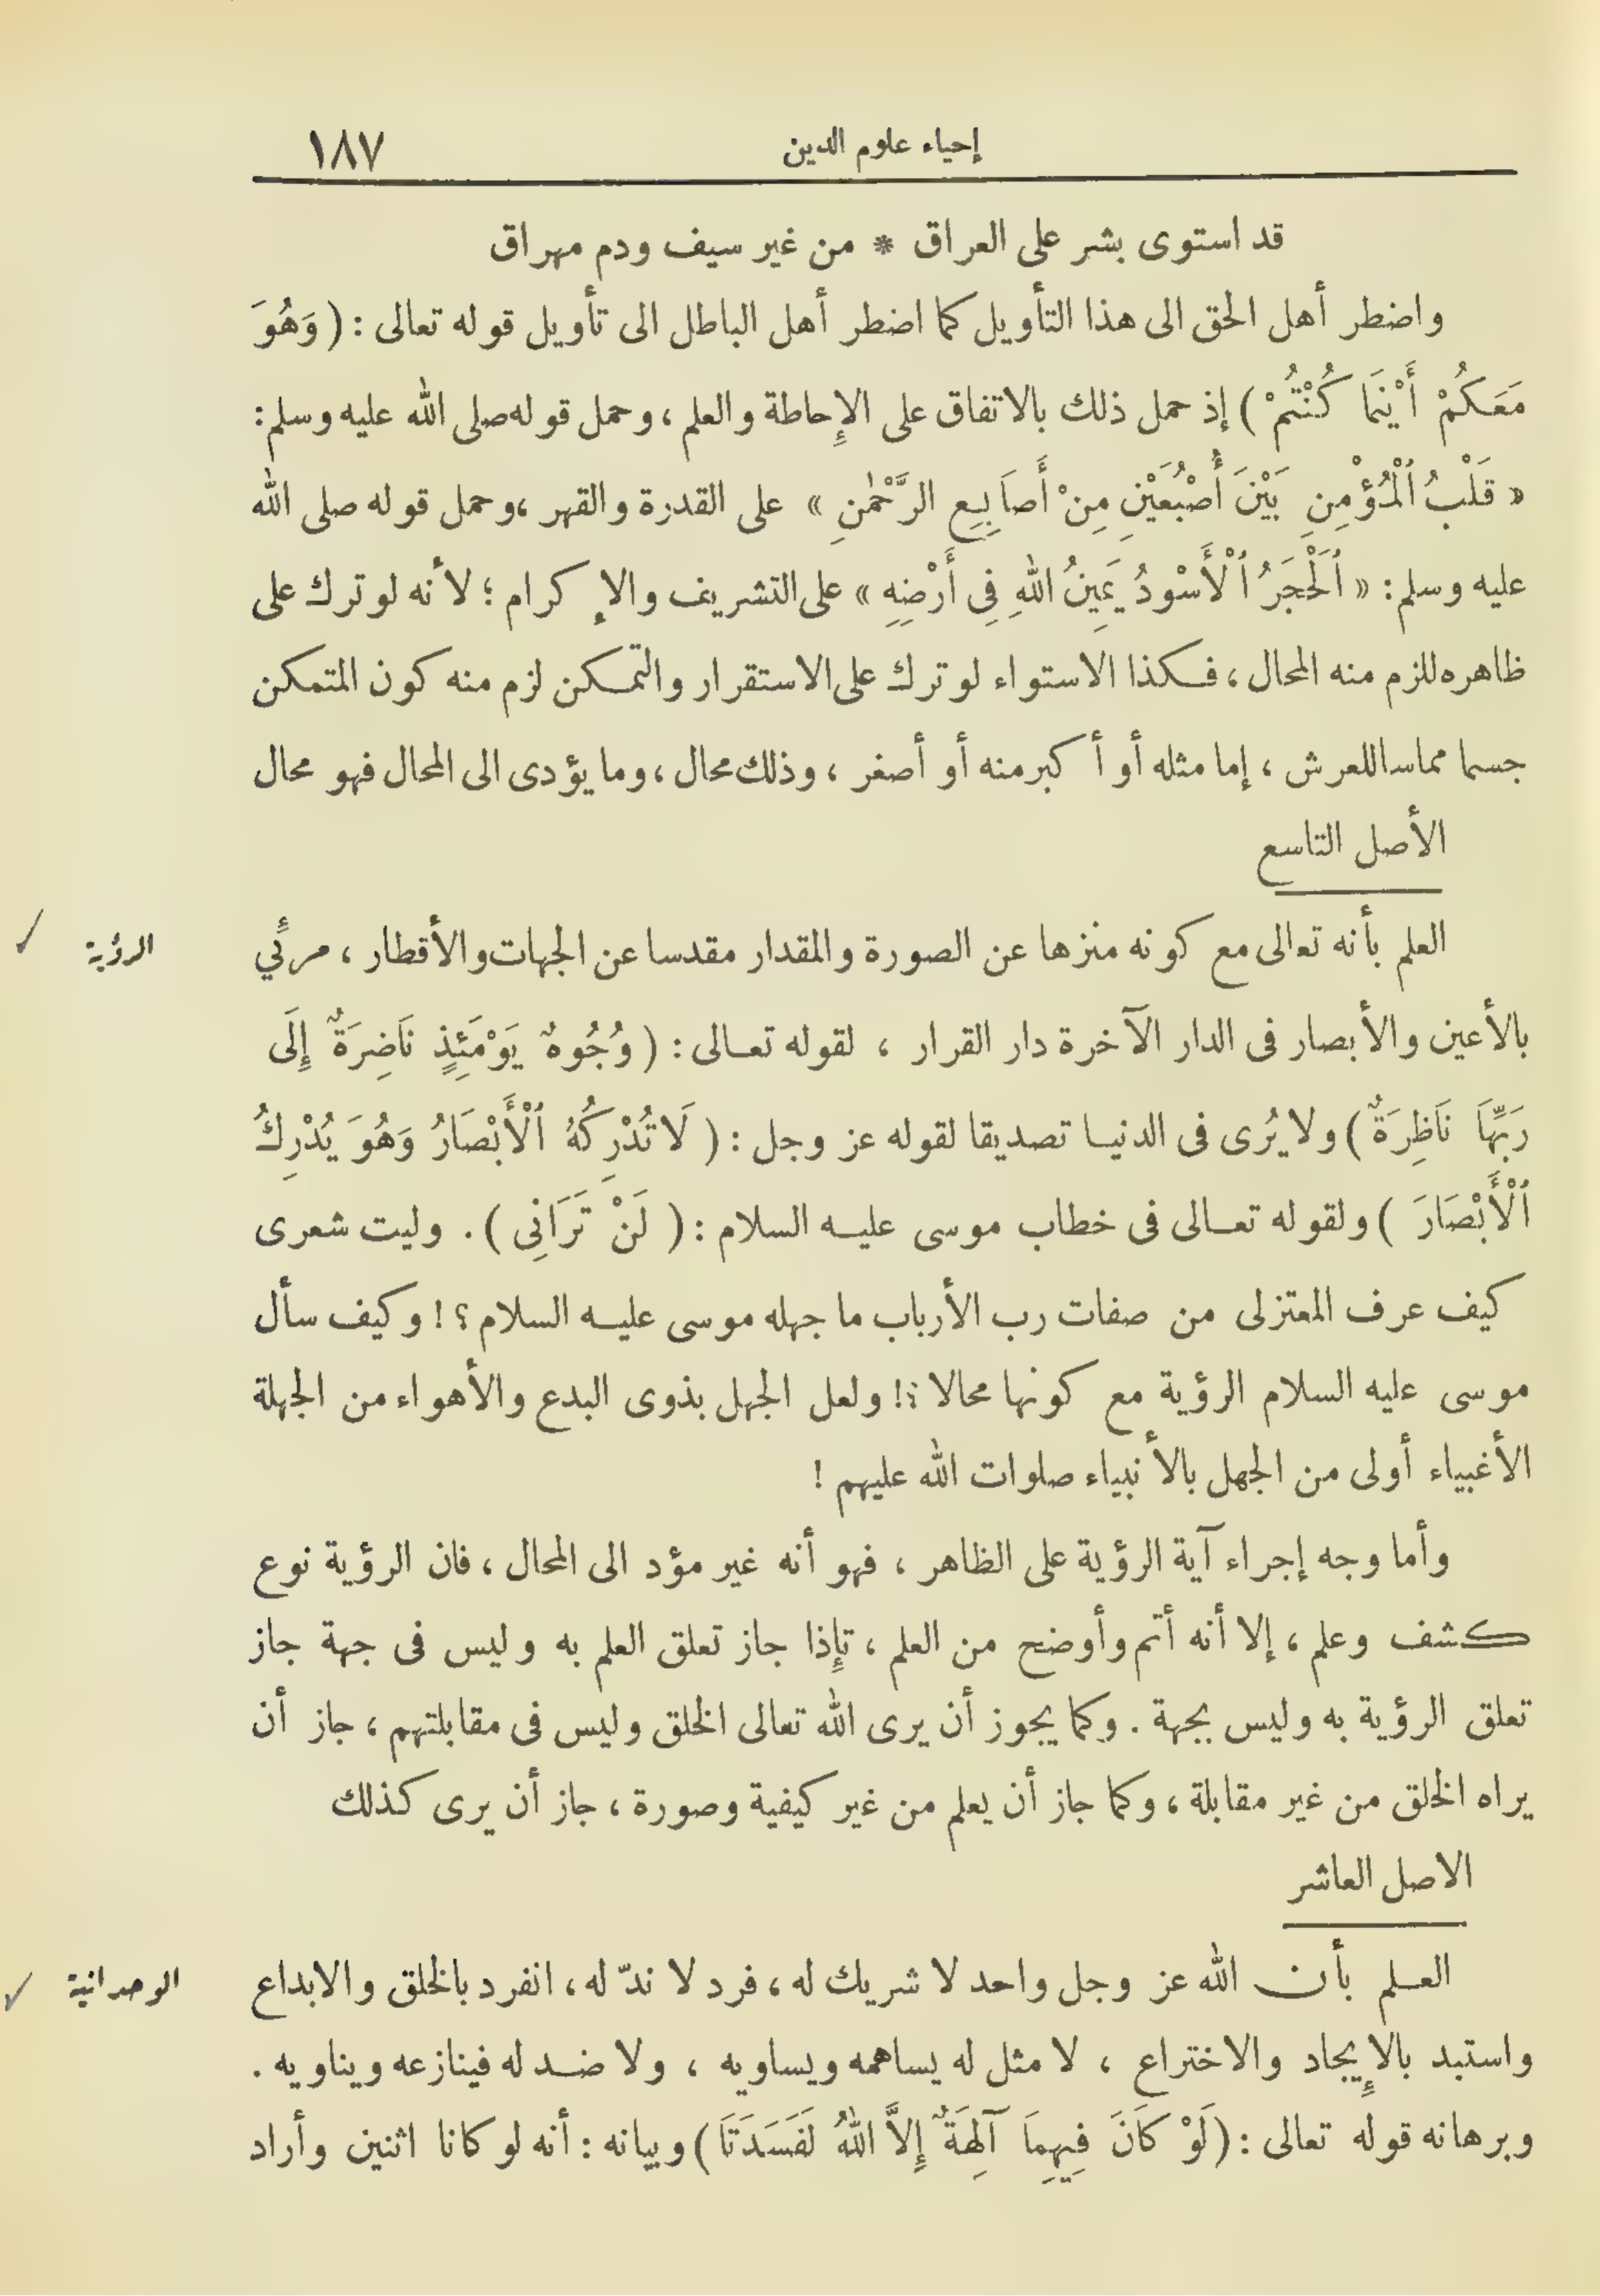 إحياء علوم الدين ١٨٧
قد استوى بشر على العراق * من غير سيف ودم مهراق
واضطر أهل الحق الى هذا التأويل كما اضطر أهل الباطل الى تأويل قوله تعالى : ( وَهُوَ
مَعَكُمْ أَيْنَمَا كُنْتُمْ ) إذ حمل ذلك بالاتفاق على الإِحاطة والعلم ، وحمل قوله صلى الله عليه وسلم :
« قَلْبُ ٱلْمُؤْمِنِ بَيْنَ أُصْبُعَيْنِ مِنْ أَصَابِعِ الرَّحْمٰنِ » على القدرة والقهر ، وحمل قوله صلى الله
عليه وسلم : « ٱلْحَجَرُ ٱلْأَسْوَدُ يَمِينُ اللهِ فِى أَرْضِهِ » على التشريف والإِ كرام ؛ لأنه لو ترك على
ظاهره للزم منه المحال ، فكذا الاستواء لو ترك على الاستقرار والتمكن لزم منه كون المتمكن
جسما مماسا للعرش ، إما مثله أو أكبر منه أو أصغر ، وذلك محال ، وما يؤدى الى المحال فهو محال
الأصل التاسع
العلم بأنه تعالى مع كونه منزها عن الصورة والمقدار مقدسا عن الجهات والأقطار ، مرئي
الرؤية
بالأعين والأبصار فى الدار الآخرة دار القرار ، لقوله تعالى : ( وُجُوهٌ يَوْمَئِذٍ نَاضِرَةٌ إِلَى
رَبِّهَا نَاظِرَةٌ ) ولا يُرى فى الدنيا تصديقا لقوله عز وجل : ( لَا تُدْرِكُهُ ٱلْأَبْصَارُ وَهُوَ يُدْرِكُ
ٱلْأَبْصَارَ ) ولقوله تعالى فى خطاب موسى عليه السلام : ( لَنْ تَرَانِى ) . وليت شعرى
كيف عرف المعتزلى من صفات رب الأرباب ما جهله موسى عليه السلام ؟ ! وكيف سأل
موسى عليه السلام الرؤية مع كونها محالا ؟! ولعل الجهل بذوى البدع والأهواء من الجهلة
الأغبياء أولى من الجهل بالأنبياء صلوات الله عليهم !
وأما وجه إجراء آية الرؤية على الظاهر ، فهو أنه غير مؤد الى المحال ، فان الرؤية نوع
كشف وعلم ، إلا أنه أتم وأوضح من العلم ، فإِذا جاز تعلق العلم به وليس فى جهة جاز
تعلق الرؤية به وليس بجهة . وكما يجوز أن يرى الله تعالى الخلق وليس فى مقابلتهم ، جاز أن
يراه الخلق من غير مقابلة ، وكما جاز أن يعلم من غير كيفية وصورة ، جاز أن يرى كذلك
الاصل العاشر
العلم بأن الله عز وجل واحد لا شريك له ، فرد لا ندّ له ، انفرد بالخلق والابداع
الوحدانية
واستبد بالإِيجاد والاختراع ، لا مثل له يساهمه ويساويه ، ولا ضد له فينازعه ويناويه .
وبرهانه قوله تعالى : ( لَوْ كَانَ فِيهِمَا آلِهَةٌ إِلاَّ اللهُ لَفَسَدَتَا ) وبيانه : أنه لو كانا اثنين وأراد